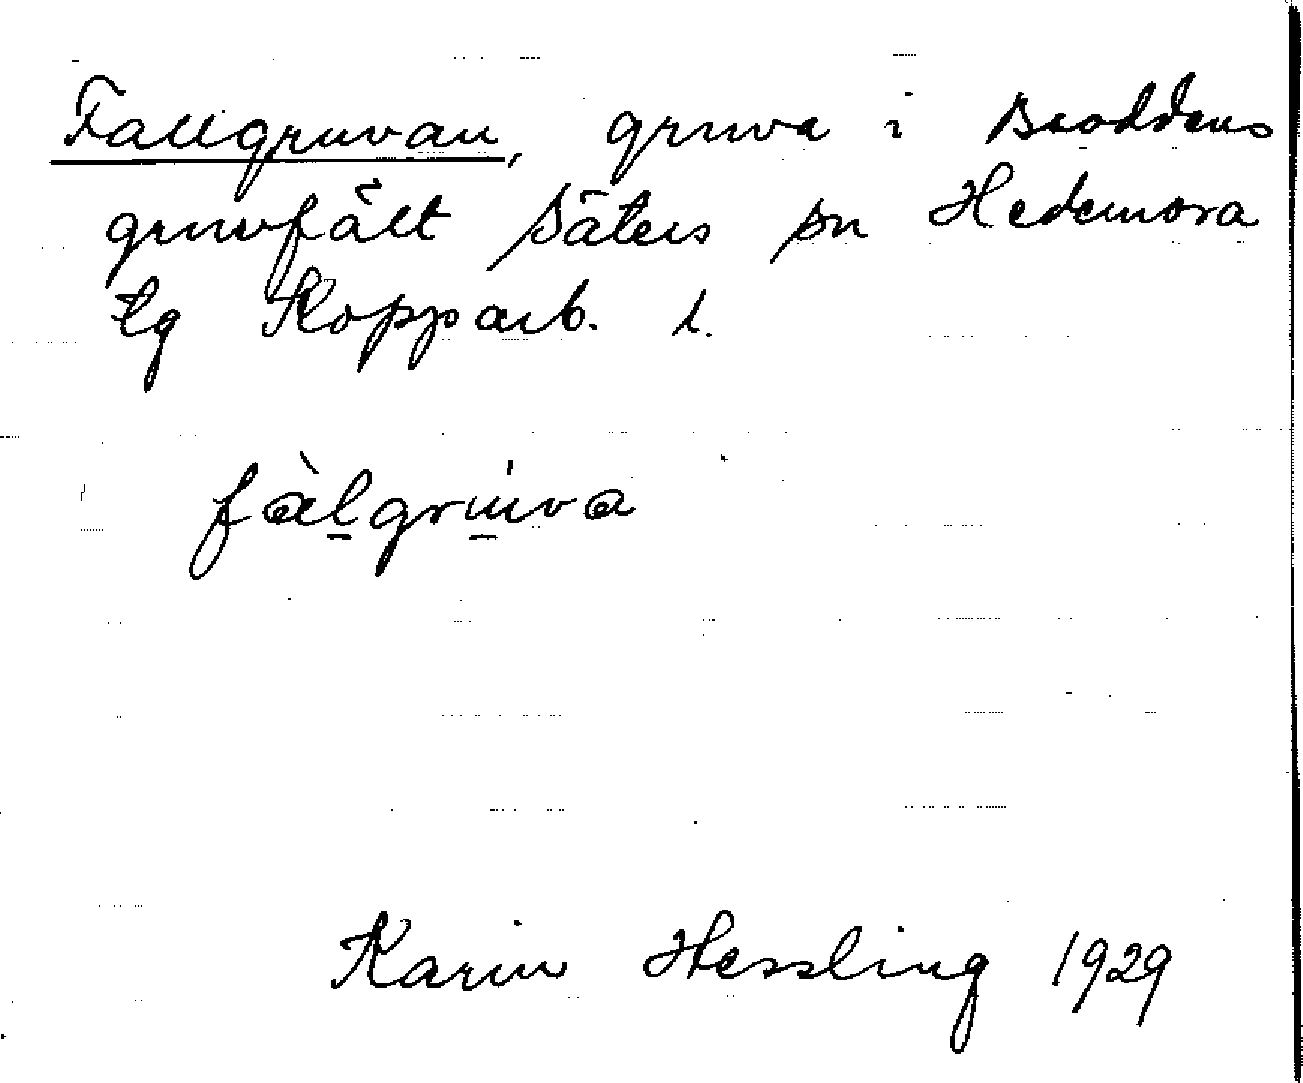 Fallgruvan, gruva i Broddens
gruvfält Säters sn Hedemora
tg Kopparb. l.
fàl̲gru̲̍va
Karin Hessling 1929